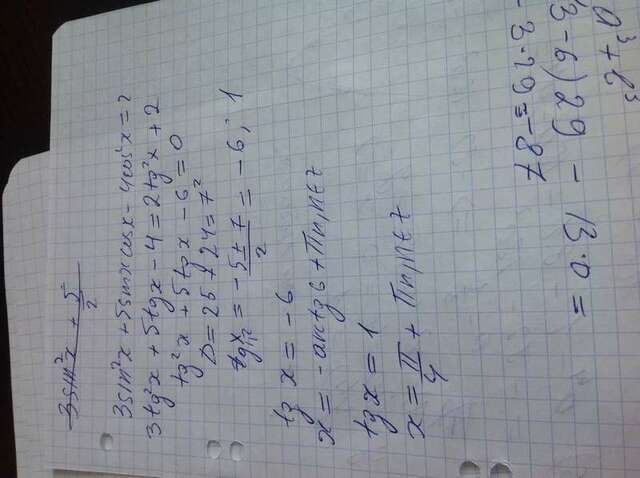 3sin²x + 5/2
3sin²x + 5sinxcosx - 4cos²x = 2
3tg²x + 5tgx - 4 = 2tg²x + 2
tg²x + 5tgx - 6 = 0
D = 25 + 24 = 7²
tgx₁,₂ = (-5 ± 7)/2 = -6; 1
tg x = -6
x = -arctg6 + πn, n∈z
tgx = 1
x = π/4 + πn, n∈z
a³ + b³
(3 - 6) 29 - 13·0 =
- 3·29 = -87